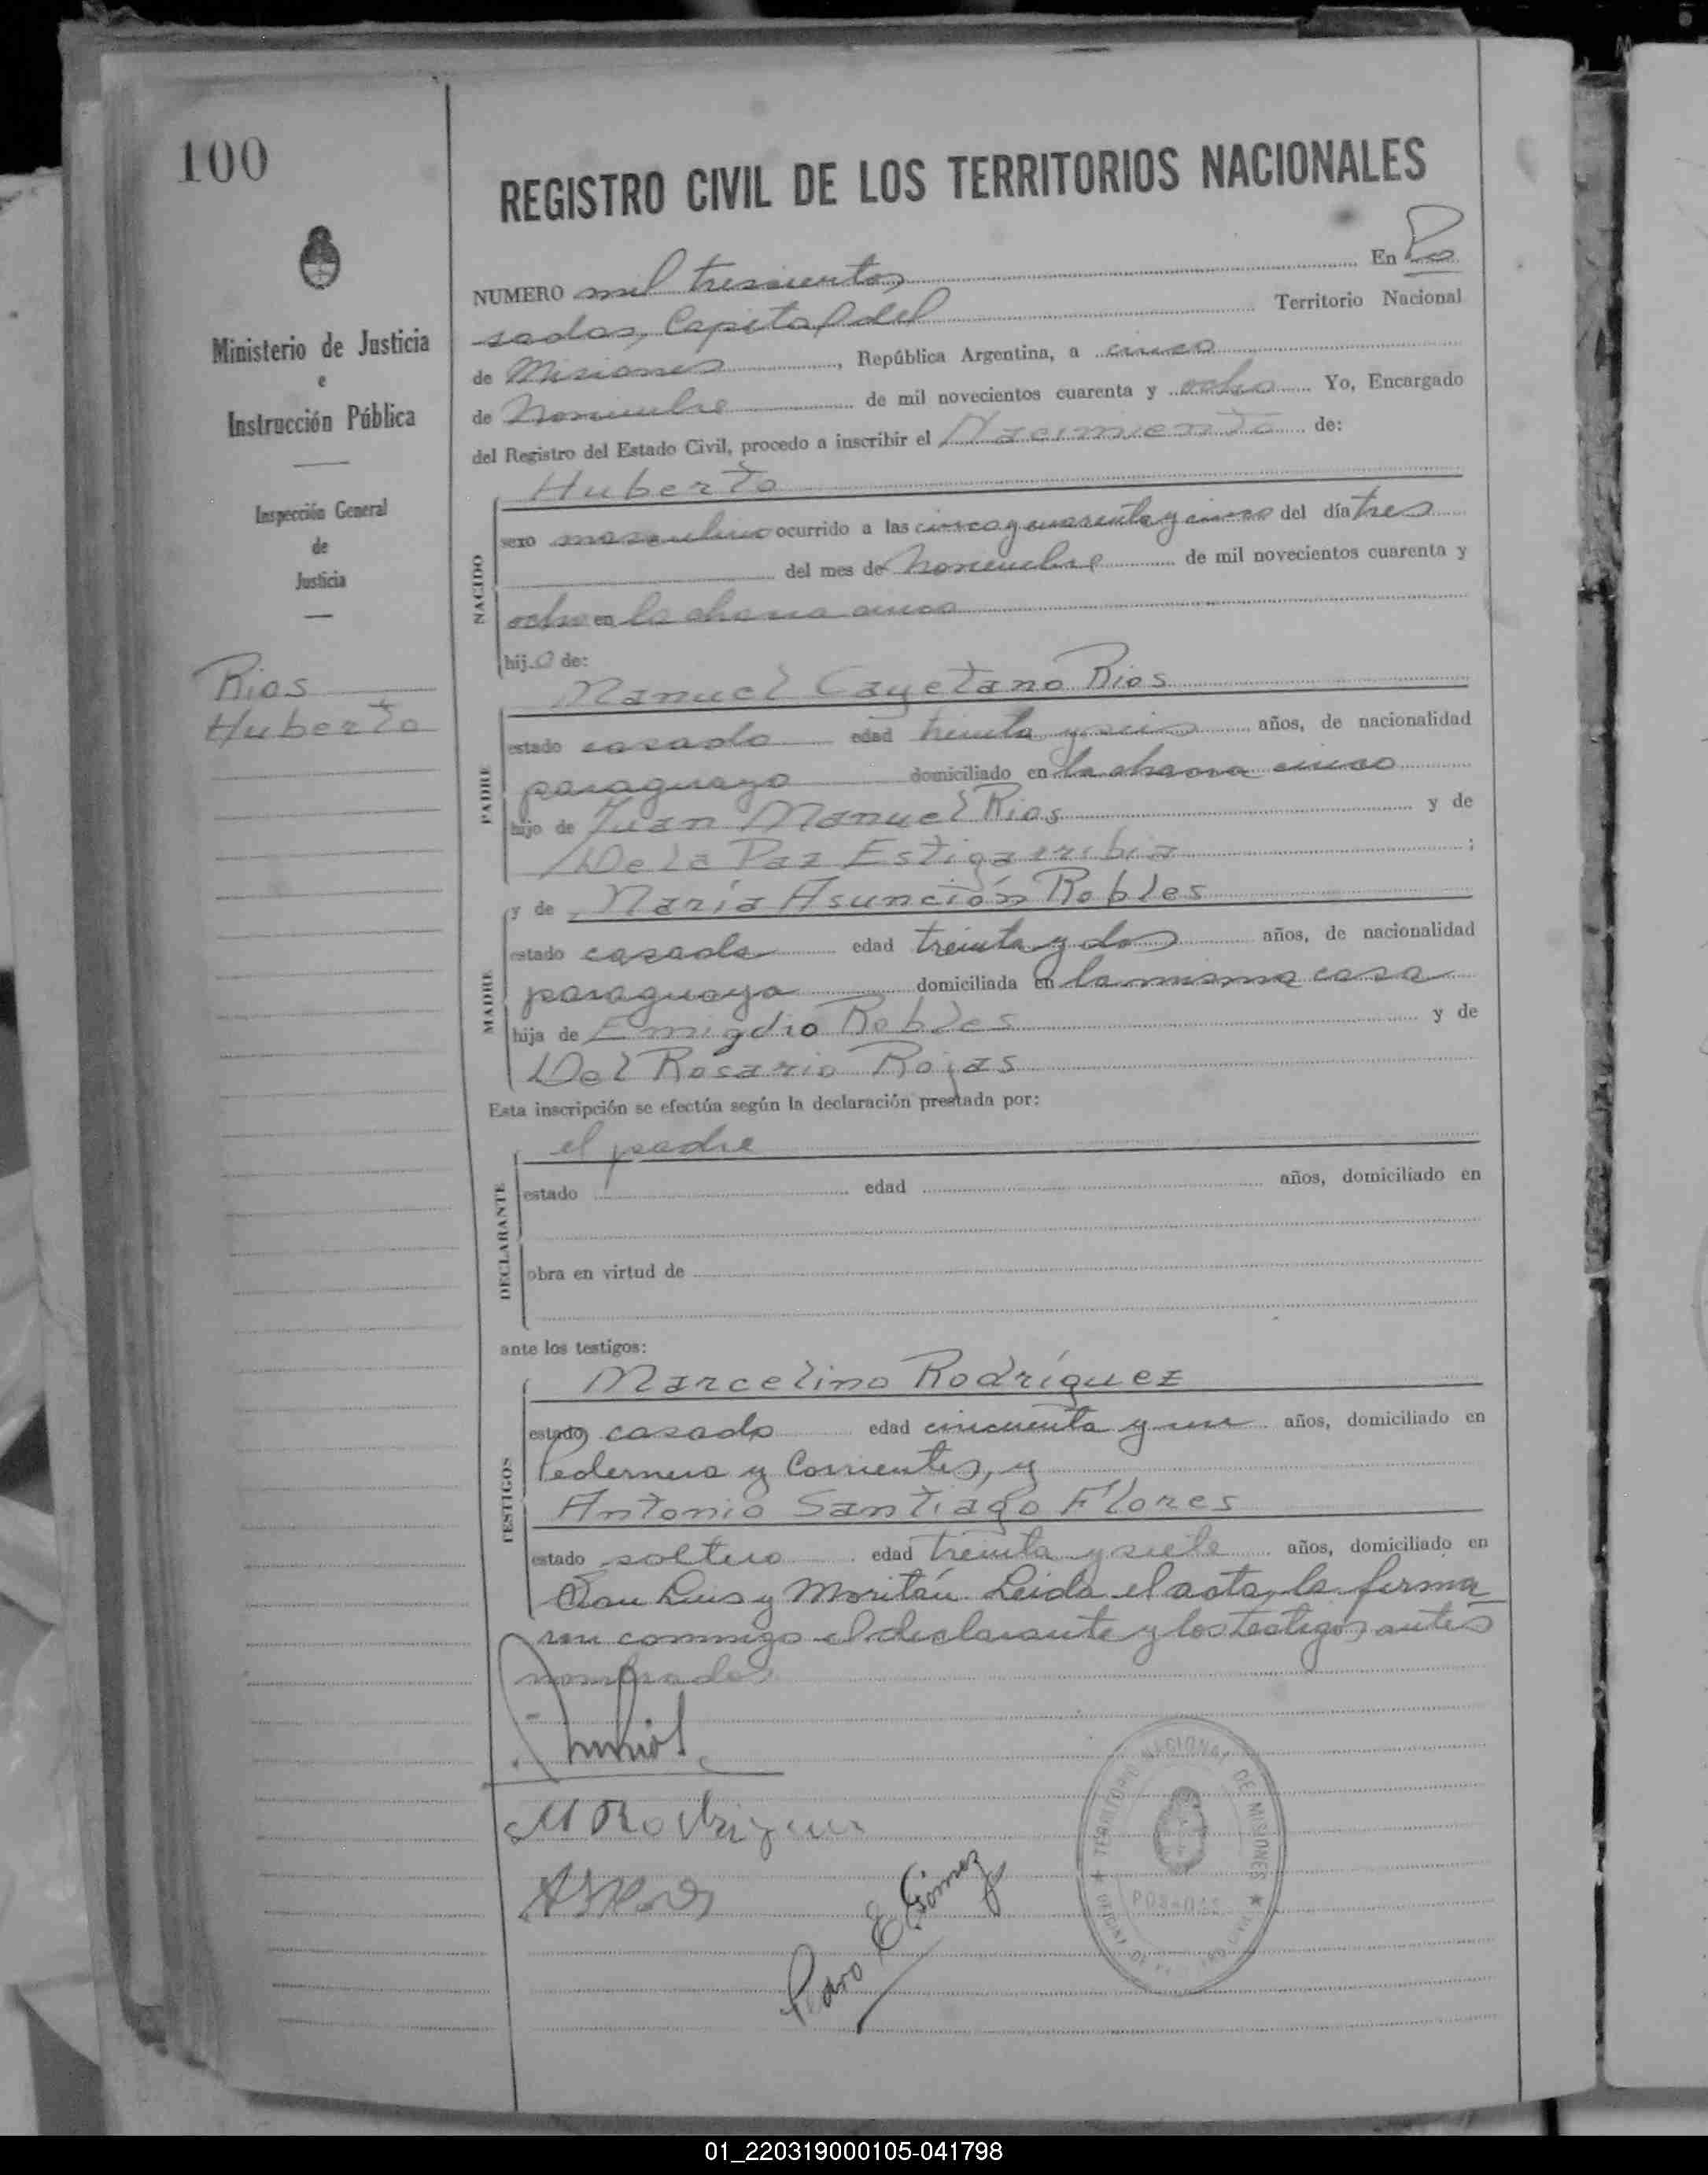 100
REGISTRO CIVIL DE LOS TERRITORIOS NACIONALES
Ministerio de Justicia
e
Instrucción Pública
Inspección General
de
Justicia
Rios
Huberto
NUMERO mil trescientos En Po
sadas, Capital del Territorio Nacional
de Misiones, República Argentina, a cinco
de Noviembre de mil novecientos cuarenta y ocho Yo, Encargado
del Registro del Estado Civil, procedo a inscribir el Nacimiento de:
Huberto
NACIDO
sexo masculino ocurrido a las cinco y cuarenta y cinco del día tres
del mes de Noviembre de mil novecientos cuarenta y
ocho en la chacra cinco
hijo de:
Manuel Cayetano Rios
PADRE
estado casado edad treinta y seis años, de nacionalidad
paraguayo domiciliado en la chacra cinco
hijo de Juan Manuel Rios y de
De la Paz Estigarribia ;
y de María Asunción Robles
MADRE
estado casada edad treinta y dos años, de nacionalidad
paraguaya domiciliada en la misma casa
hija de Emigdio Robles y de
Del Rosario Rojas
Esta inscripción se efectúa según la declaración prestada por:
el padre
DECLARANTE
estado edad años, domiciliado en
obra en virtud de
ante los testigos:
Marcelino Rodríguez
TESTIGOS
estado casado edad cincuenta y un años, domiciliado en
Pedernera y Corrientes, y
Antonio Santiago Flores
estado soltero edad treinta y siete años, domiciliado en
San Luis y Moritán. Leida el acta, la firma
ron conmigo el declarante y los testigos antes
nombrados
M Rodriguez
E. Gómez
TERRITORIO NACIONAL DE MISIONES
POSADAS
01_220319000105-041798